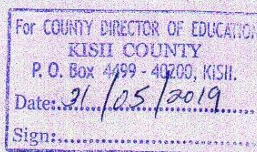 For COUNTY DIRECTOR OF EDUCATION
KISII COUNTY
P. O. Box 4499 - 40200, KISII.
Date: 31/05/2019
Sign: